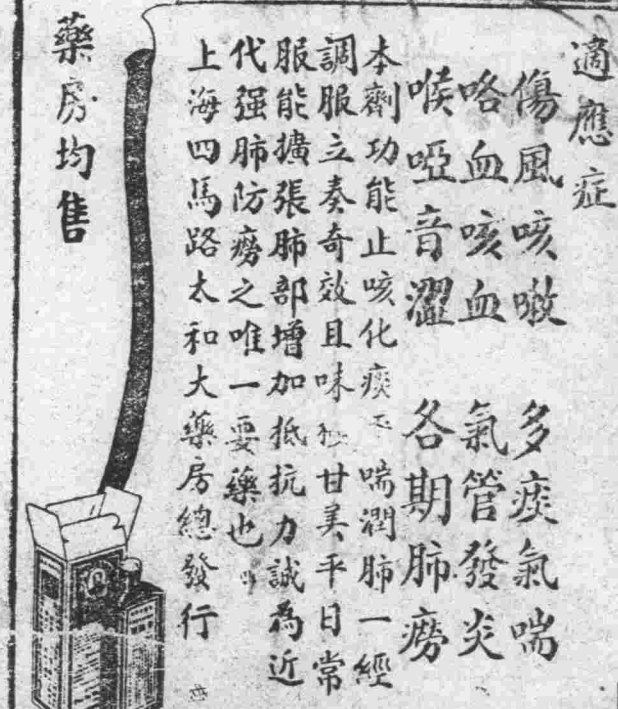 適應症
傷風咳嗽 多痰氣喘
咯血咳血 氣管發炎
喉啞音澀 各期肺癆
本劑功能止咳化痰 喘潤肺一經
調服立奏奇效且味 甘美平日常
服能擴張肺部增加抵抗力誠為近
代强肺防癆之唯一要藥也
上海四馬路太和大藥房總發行
藥房均售